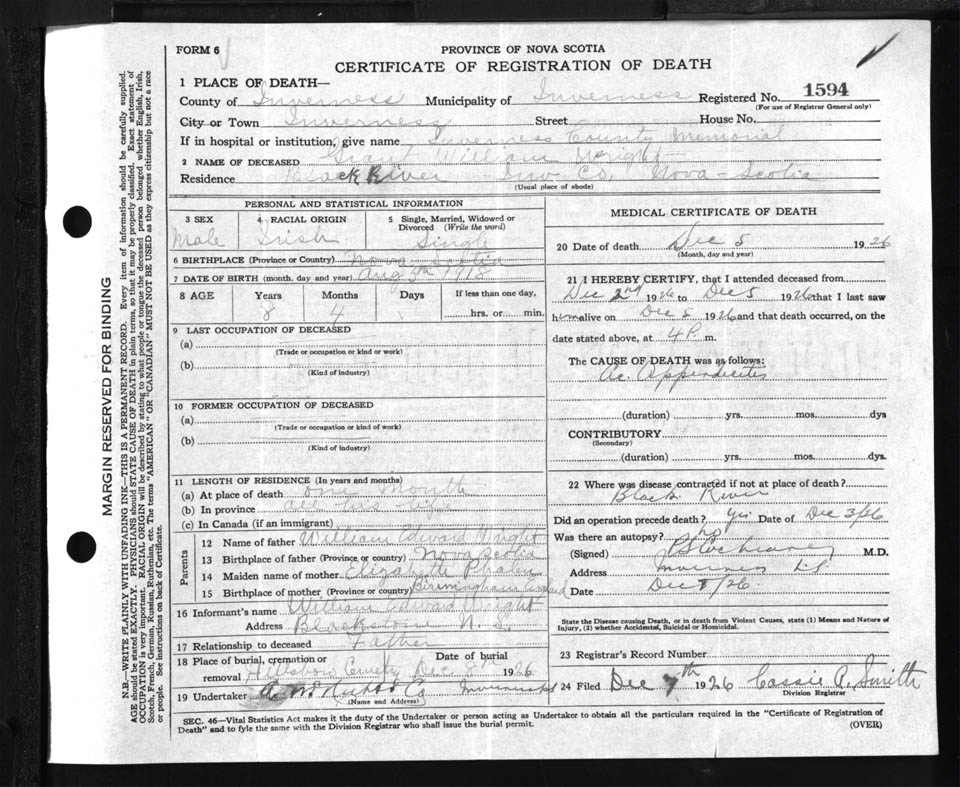 FORM 6
PROVINCE OF NOVA SCOTIA
CERTIFICATE OF REGISTRATION OF DEATH
1 PLACE OF DEATH—
County of Inverness Municipality of Inverness Registered No. 1594
(For use of Registrar General only)
City or Town Inverness Street House No.
If in hospital or institution, give name Inverness County Memorial
2 NAME OF DECEASED Grant William Wright
Residence Black River Inv. Co. Nova-Scotia
(Usual place of abode)
PERSONAL AND STATISTICAL INFORMATION
3 SEX 4 RACIAL ORIGIN 5 Single, Married, Widowed or Divorced (Write the word)
Male Irish Single
6 BIRTHPLACE (Province or Country) Nova Scotia
7 DATE OF BIRTH (month, day and year) Aug 5th 1918
8 AGE Years Months Days If less than one day,
8 4 hrs. or min.
9 LAST OCCUPATION OF DECEASED
(a)
(Trade or occupation or kind or work)
(b)
(Kind of industry)
10 FORMER OCCUPATION OF DECEASED
(a)
(Trade or occupation or kind of work)
(b)
(Kind of industry)
11 LENGTH OF RESIDENCE (In years and months)
(a) At place of death one month
(b) In province all his life
(c) In Canada (if an immigrant)
Parents
12 Name of father William Edward Wright
13 Birthplace of father (Province or country) Nova Scotia
14 Maiden name of mother Elizabeth Phalen
15 Birthplace of mother (Province or country) Birmingham England
16 Informant's name William Edward Wright
Address Blackstone N. S.
17 Relationship to deceased Father
18 Place of burial, cremation or removal Hillsboro Cemetry Date of burial Dec 8th 1926
19 Undertaker Co Inverness
(Name and Address)
MEDICAL CERTIFICATE OF DEATH
20 Date of death Dec 5 1926
(Month, day and year)
21 I HEREBY CERTIFY, that I attended deceased from
Dec 2nd 1926 to Dec 5 1926 that I last saw
him alive on Dec 5 1926 and that death occurred, on the
date stated above, at 4 P. m.
The CAUSE OF DEATH was as follows:
Ac. Appendicitis
(duration) yrs. mos. dys
CONTRIBUTORY
(Secondary)
(duration) yrs. mos. dys.
22 Where was disease contracted if not at place of death?
Black River
Did an operation precede death? yes Date of Dec 3/26
Was there an autopsy? no
(Signed) M.D.
Address Inverness N.S.
Date Dec /26.
State the Disease causing Death, or in death from Violent Causes, state (1) Means and Nature of Injury, (2) whether Accidental, Suicidal or Homicidal.
23 Registrar's Record Number
24 Filed Dec 7th 1926 Cassie P. Smith
Division Registrar
SEC. 46—Vital Statistics Act makes it the duty of the Undertaker or person acting as Undertaker to obtain all the particulars required in the "Certificate of Registration of
Death" and to fyle the same with the Division Registrar who shall issue the burial permit.
(OVER)
MARGIN RESERVED FOR BINDING
N.B.—WRITE PLAINLY WITH UNFADING INK—THIS IS A PERMANENT RECORD. Every item of information should be carefully supplied.
AGE should be stated EXACTLY. PHYSICIANS should STATE CAUSE OF DEATH in plain terms, so that it may be properly classified. Exact statement of
OCCUPATION is very important. RACIAL ORIGIN will be described by stating to what people or tongue the deceased person belonged whether English, Irish,
Scotch, French, German, Russian, Ruthenian, etc. The terms "AMERICAN" OR "CANADIAN" MUST NOT BE USED as they express citizenship but not a race
or people. See instructions on back of Certificate.